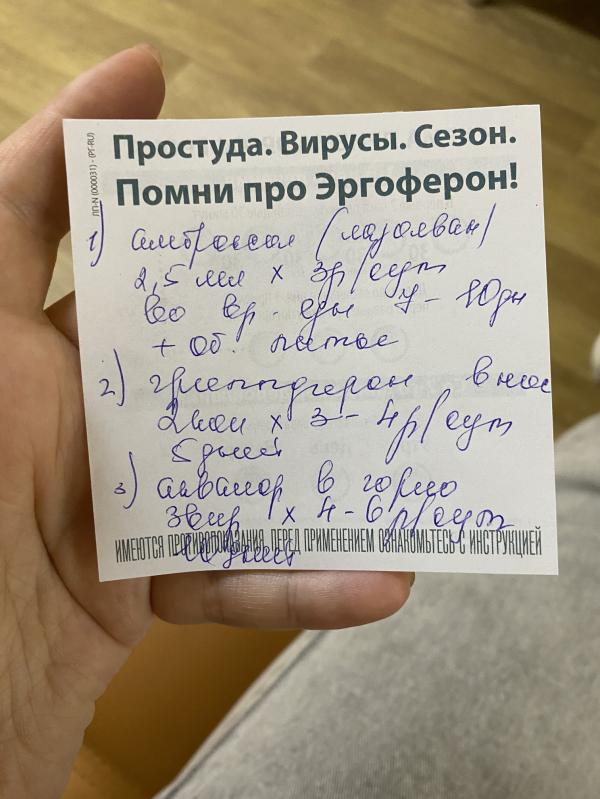 ЛП-N (000031) - (РГ-RU)
Простуда. Вирусы. Сезон.
Помни про Эргоферон!
1) амброксол (лазолван)
2,5 мл х 3р/сут
во вр. еды 7-10дн
+ об. питье
2) гриппферон в нос
2кап х 3-4р/сут
5 дней
3) аквамар в горло
3впр х 4-6р/сут
ИМЕЮТСЯ ПРОТИВОПОКАЗАНИЯ. ПЕРЕД ПРИМЕНЕНИЕМ ОЗНАКОМЬТЕСЬ С ИНСТРУКЦИЕЙ
дней